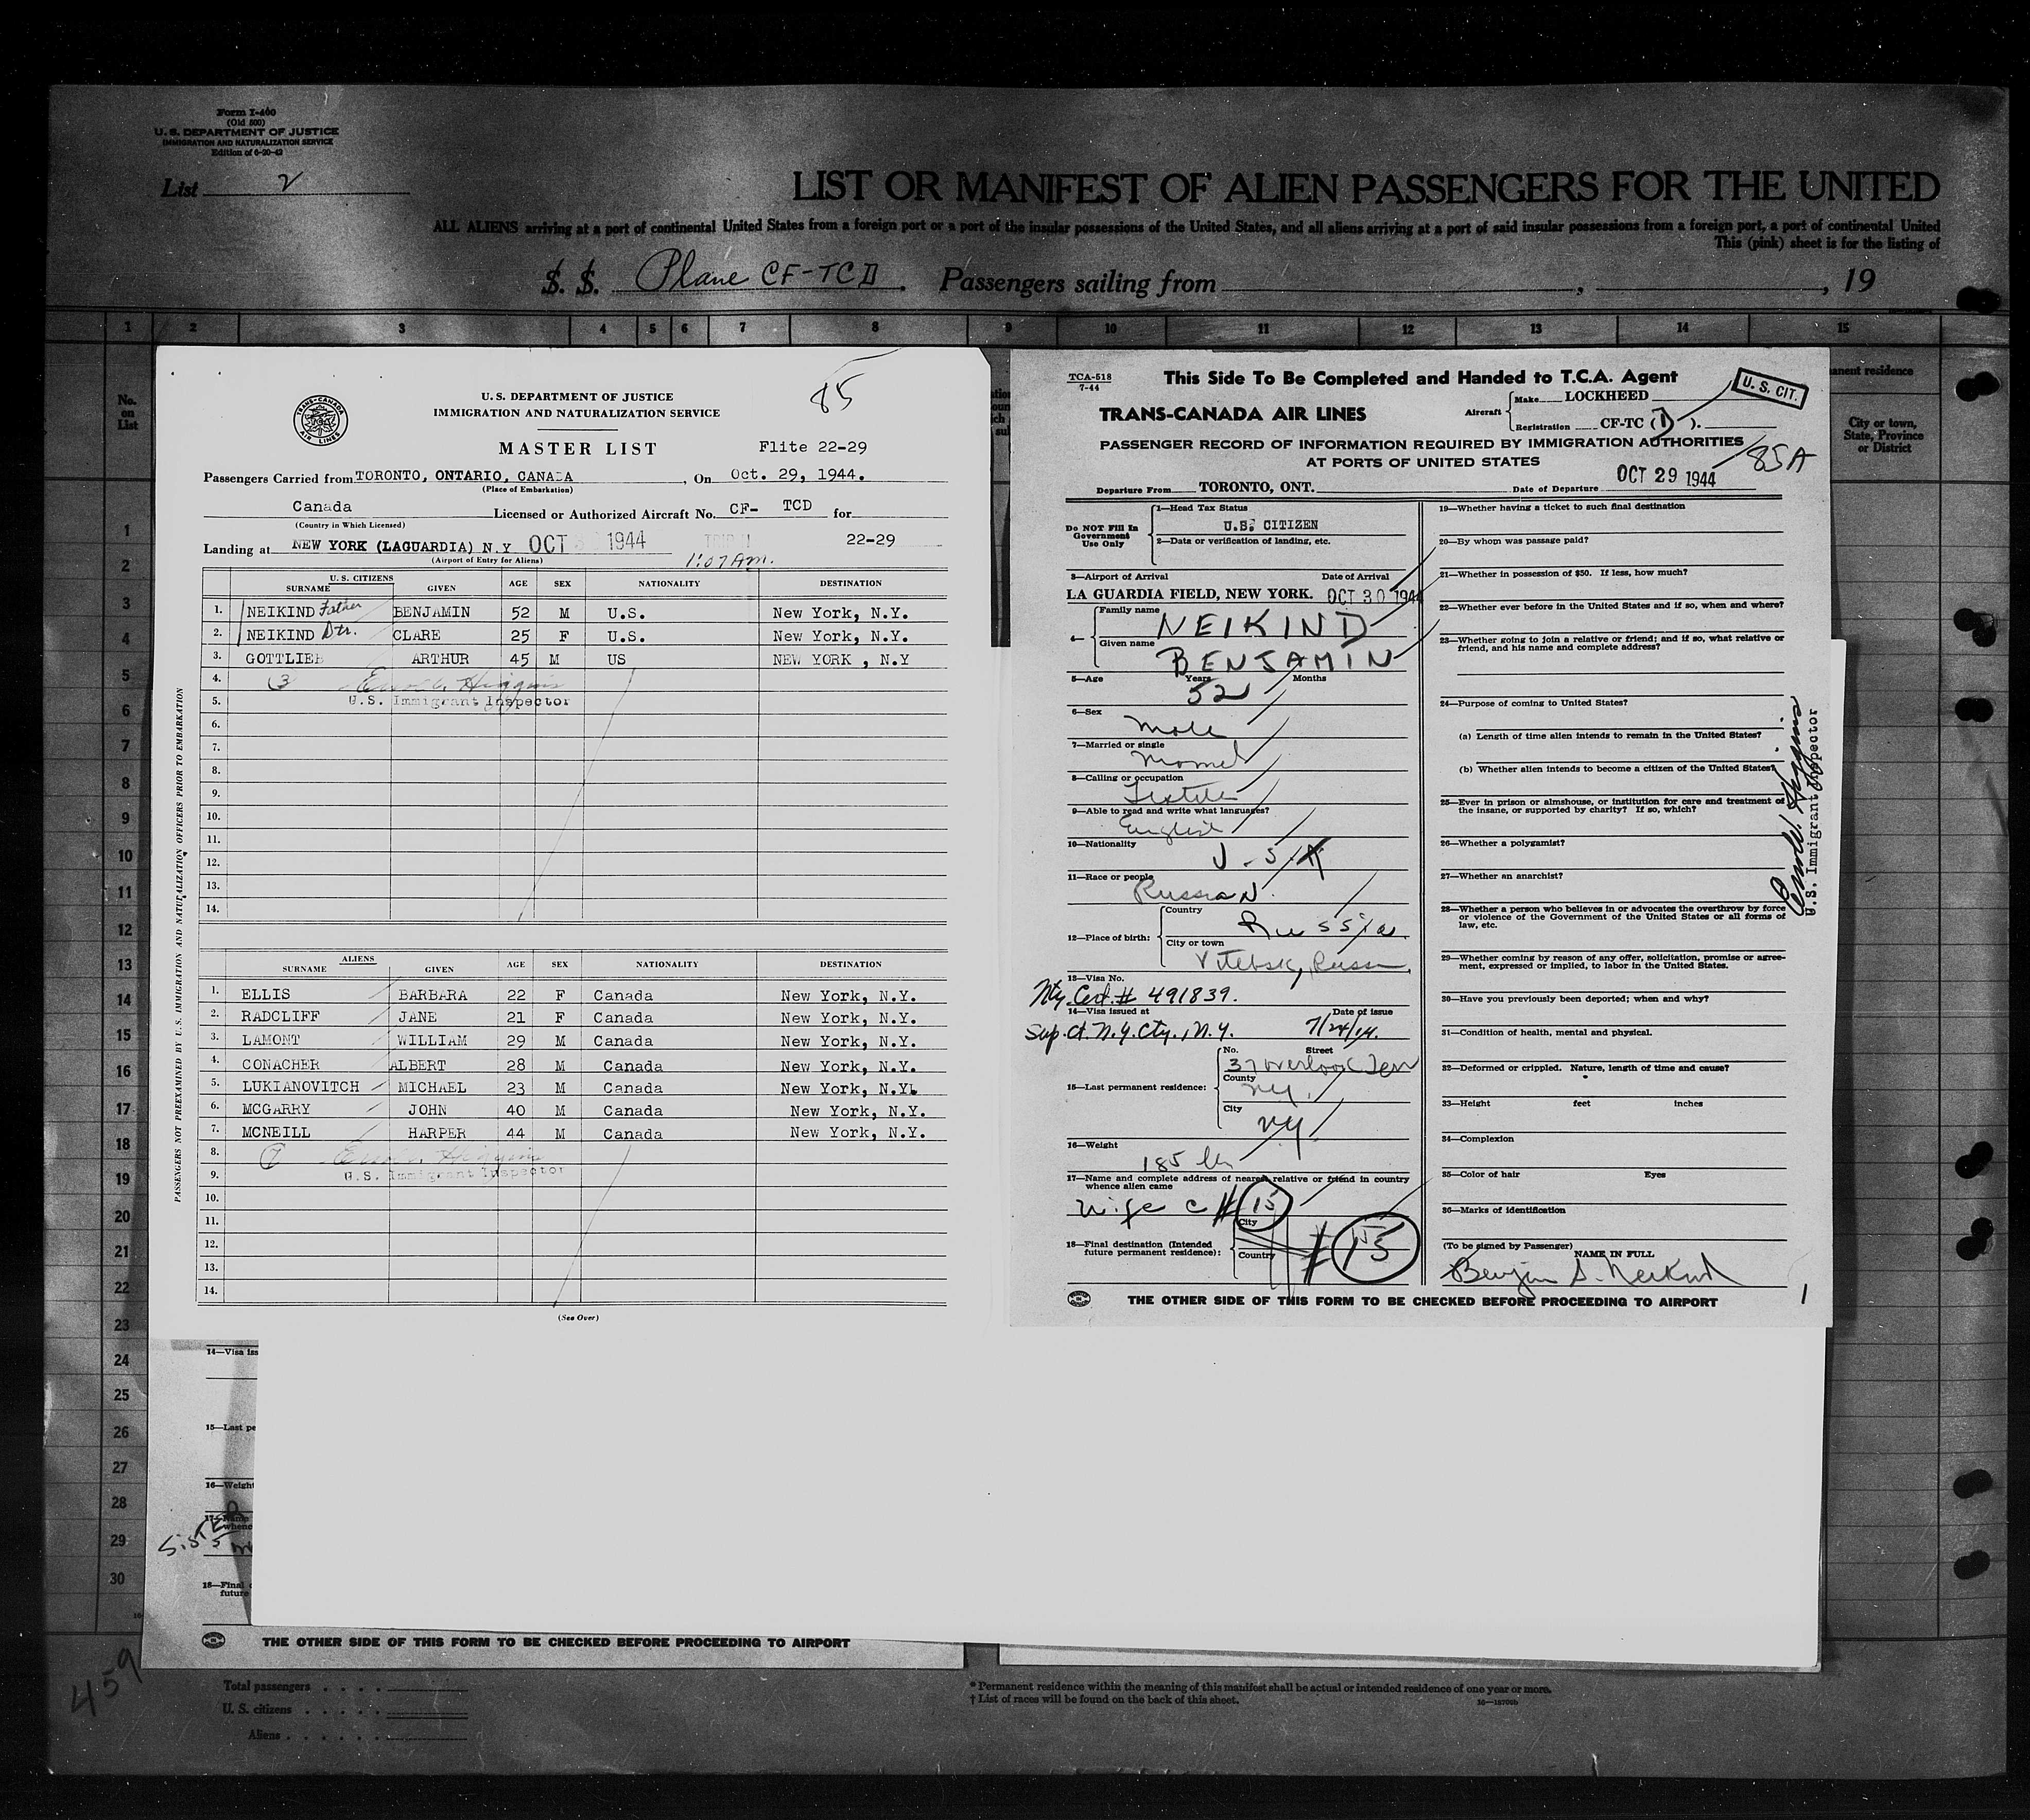 Form I-400
(Old 500)
U. S. DEPARTMENT OF JUSTICE
IMMIGRATION AND NATURALIZATION SERVICE
Edition of 6-20-42
List 2
LIST OR MANIFEST OF ALIEN PASSENGERS FOR THE UNITED
ALL ALIENS arriving at a port of continental United States from a foreign port or a port of the insular possessions of the United States, and all aliens arriving at a port of said insular possessions from a foreign port, a port of continental United
This (pink) sheet is for the listing of
S. S. Plane CF-TCD. Passengers sailing from , , 19
1 2 3 4 5 6 7 8 9 10 11 12 13 14 15
No.
on
List
anent residence
City or town,
State, Province
or District
1
2
3
4
5
6
7
8
9
10
11
12
13
14
15
16
17
18
19
20
21
22
23
24
25
26
27
28
29
30
TRANS-CANADA AIR LINES
85
U. S. DEPARTMENT OF JUSTICE
IMMIGRATION AND NATURALIZATION SERVICE
MASTER LIST Flite 22-29
Passengers Carried from TORONTO, ONTARIO, CANADA, On Oct. 29, 1944.
(Place of Embarkation)
Canada Licensed or Authorized Aircraft No. CF- TCD for
(Country in Which Licensed)
Landing at NEW YORK (LAGUARDIA) N.Y OCT 1944 22-29
(Airport of Entry for Aliens) 1:07 Am.
U. S. CITIZENS
SURNAME GIVEN AGE SEX NATIONALITY DESTINATION
1. NEIKIND Father BENJAMIN 52 M U.S. New York, N.Y.
2. NEIKIND Dtr. CLARE 25 F U.S. New York, N.Y.
3. GOTTLIEB ARTHUR 45 M US NEW YORK , N.Y
4. (3
5. U.S. Immigrant Inspector
6.
7.
8.
9.
10.
11.
12.
13.
14.
ALIENS
SURNAME GIVEN AGE SEX NATIONALITY DESTINATION
1. ELLIS BARBARA 22 F Canada New York, N.Y.
2. RADCLIFF JANE 21 F Canada New York, N.Y.
3. LAMONT WILLIAM 29 M Canada New York, N.Y.
4. CONACHER ALBERT 28 M Canada New York, N.Y.
5. LUKIANOVITCH MICHAEL 23 M Canada New York, N.Y.
6. MCGARRY JOHN 40 M Canada New York, N.Y.
7. MCNEILL HARPER 44 M Canada New York, N.Y.
8. 7
9. U.S. Immigrant Inspector
10.
11.
12.
13.
14.
(See Over)
PASSENGERS NOT PREEXAMINED BY U. S. IMMIGRATION AND NATURALIZATION OFFICERS PRIOR TO EMBARKATION
TCA-518
7-44
This Side To Be Completed and Handed to T.C.A. Agent
U. S. CIT.
TRANS-CANADA AIR LINES
Aircraft Make LOCKHEED
Registration CF-TC (D).
PASSENGER RECORD OF INFORMATION REQUIRED BY IMMIGRATION AUTHORITIES
AT PORTS OF UNITED STATES
85A
Departure From TORONTO, ONT. Date of Departure OCT 29 1944
Do NOT Fill In
Government
Use Only
1—Head Tax Status
U.S. CITIZEN
2—Data or verification of landing, etc.
3—Airport of Arrival Date of Arrival
LA GUARDIA FIELD, NEW YORK. OCT 30 1944
4— Family name NEIKIND
Given name BENJAMIN
5—Age Years Months
52
6—Sex
Male
7—Married or single
8—Calling or occupation
Textile
9—Able to read and write what languages?
English
10—Nationality
U.S.A
11—Race or people
Russian
12—Place of birth: Country Russia
City or town Vitebsk, Russia
13—Visa No.
Nty Cert.# 491839.
14—Visa issued at Date of issue
Sup. Ct. N.Y. Cty., N.Y. 7/24/14.
15—Last permanent residence: No. Street
37 Overlook Terr
County
NY.
City
NY
16—Weight
185 lbs
17—Name and complete address of nearest relative or friend in country
whence alien came
Wife c # 15
18—Final destination (Intended
future permanent residence): City
Country
# 15
19—Whether having a ticket to such final destination
20—By whom was passage paid?
21—Whether in possession of $50. If less, how much?
22—Whether ever before in the United States and if so, when and where?
23—Whether going to join a relative or friend; and if so, what relative or
friend, and his name and complete address?
24—Purpose of coming to United States?
(a) Length of time alien intends to remain in the United States?
(b) Whether alien intends to become a citizen of the United States?
25—Ever in prison or almshouse, or institution for care and treatment of
the insane, or supported by charity? If so, which?
26—Whether a polygamist?
27—Whether an anarchist?
28—Whether a person who believes in or advocates the overthrow by force
or violence of the Government of the United States or all forms of
law, etc.
29—Whether coming by reason of any offer, solicitation, promise or agree-
ment, expressed or implied, to labor in the United States.
30—Have you previously been deported; when and why?
31—Condition of health, mental and physical.
32—Deformed or crippled. Nature, length of time and cause?
33—Height feet inches
34—Complexion
35—Color of hair Eyes
36—Marks of identification
(To be signed by Passenger) NAME IN FULL
Benjm S. Neikind
1
U.S. Immigrant Inspector
THE OTHER SIDE OF THIS FORM TO BE CHECKED BEFORE PROCEEDING TO AIRPORT
14—Visa iss
15—Last pe
16—Weight
17—Name
whenc
SISTER
18—Final d
future
THE OTHER SIDE OF THIS FORM TO BE CHECKED BEFORE PROCEEDING TO AIRPORT
459
Total passengers
U. S. citizens
Aliens
* Permanent residence within the meaning of this manifest shall be actual or intended residence of one year or more.
† List of races will be found on the back of this sheet.